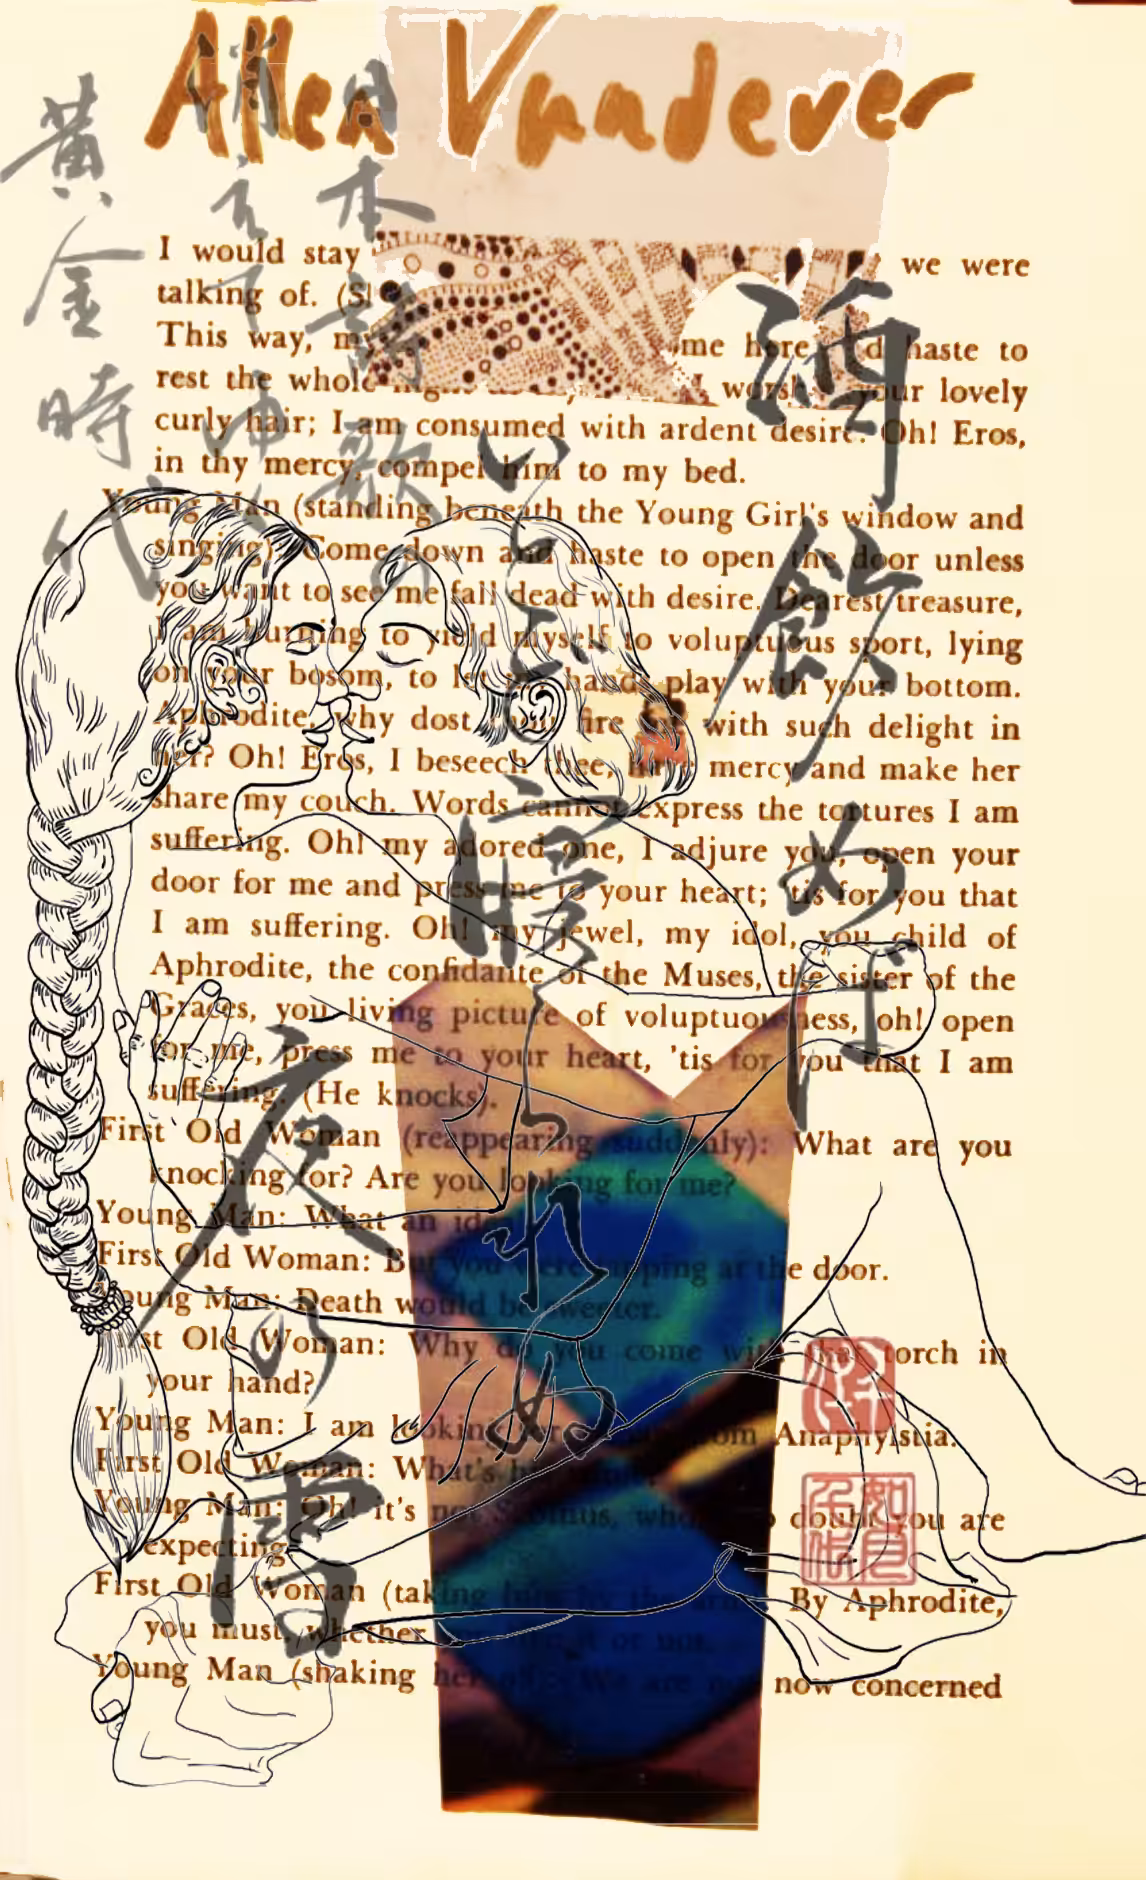 Allen Vandever
I would stay we were
talking of.
This way, me here haste to
rest the whole your lovely
curly hair; I am consumed with ardent desire. Oh! Eros,
in thy mercy, compel him to my bed.
Young Man (standing beneath the Young Girl's window and
singing): Come down and haste to open the door unless
you want to see me fall dead with desire. Dearest treasure,
I am burning to yield myself to voluptuous sport, lying
on your bosom, to let hands play with your bottom.
Aphrodite, why dost thou fire with such delight in
her? Oh! Eros, I beseech thee, have mercy and make her
share my couch. Words cannot express the tortures I am
suffering. Oh! my adored one, I adjure you, open your
door for me and press me to your heart; 'tis for you that
I am suffering. Oh! my jewel, my idol, you child of
Aphrodite, the confidante of the Muses, the sister of the
Graces, you living picture of voluptuousness, oh! open
for me, press me to your heart, 'tis for you that I am
suffering. (He knocks).
First Old Woman (reappearing suddenly): What are you
knocking for? Are you looking for me?
Young Man: What an idea
First Old Woman: But you were rapping at the door.
Young Man: Death would be sweeter.
First Old Woman: Why do you come with that torch in
your hand?
Young Man: I am looking for from Anaphlystia.
First Old Woman: What's his
Young Man: Oh! it's not who no doubt you are
expecting
First Old Woman (taking him by the arm): By Aphrodite,
you must, whether it or not.
Young Man (shaking We are not now concerned
酒飲めば
いとゞ寝られぬ
夜の雪
日本詩歌の
黄金時代